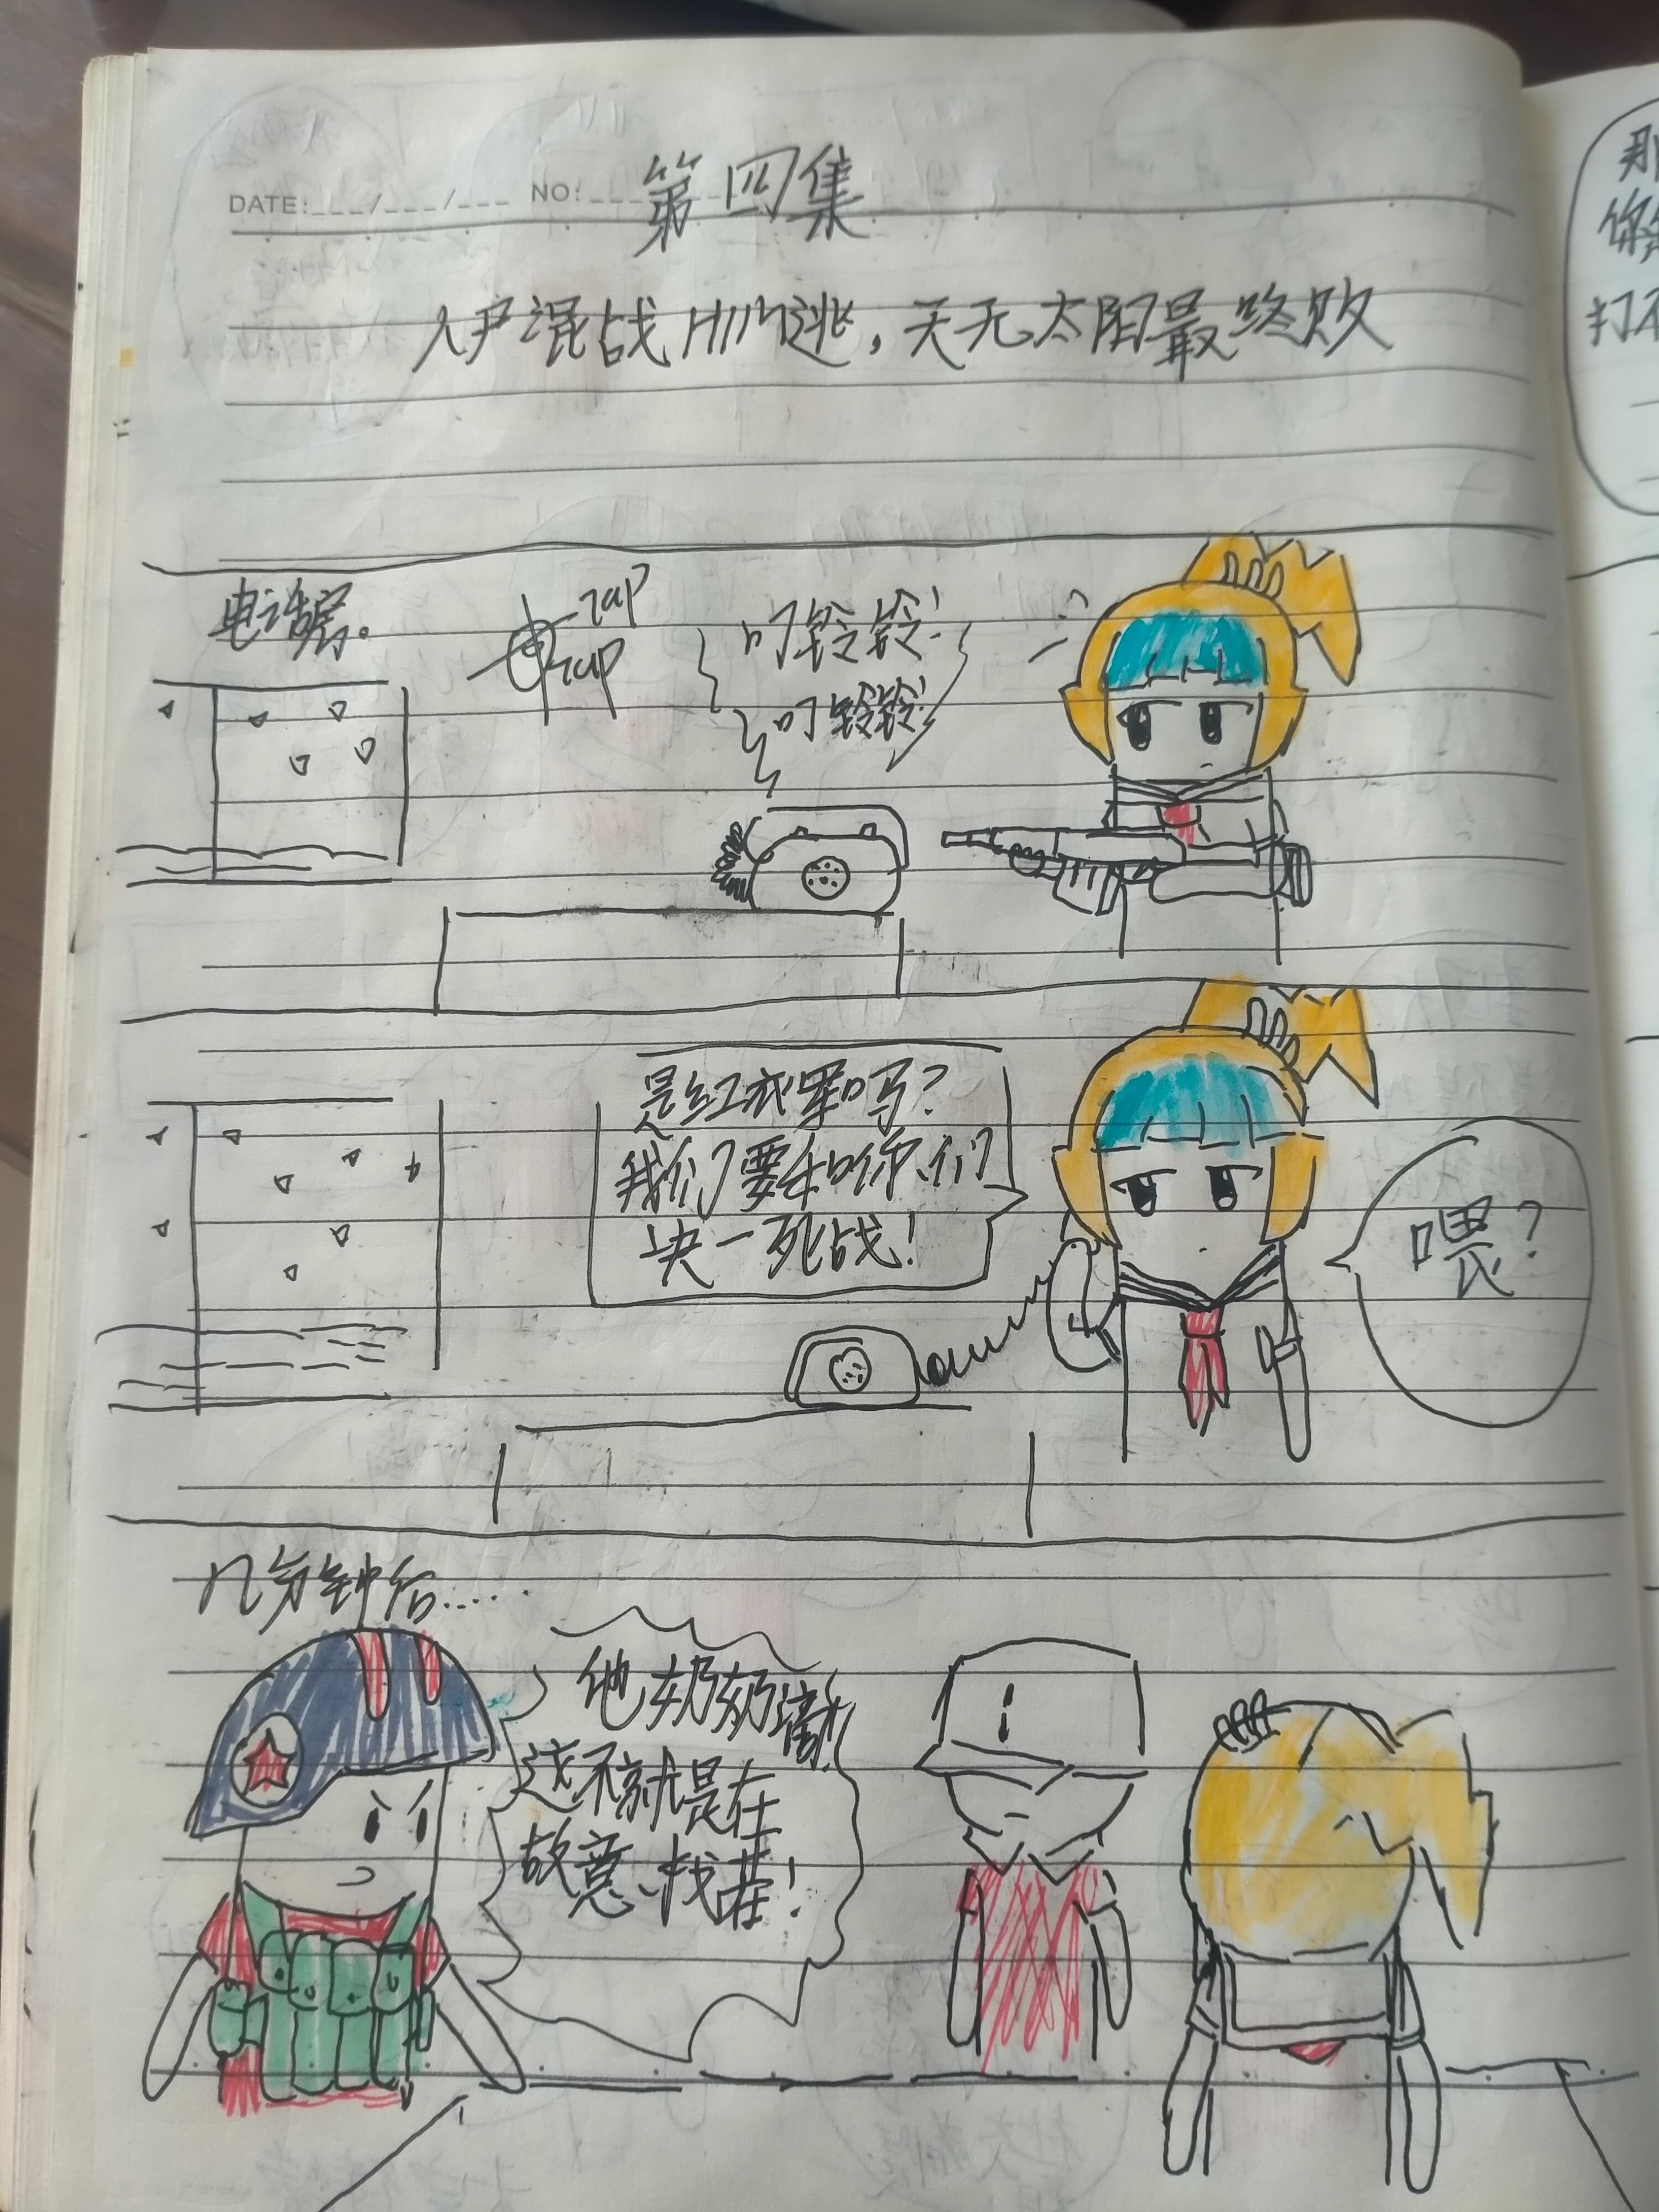 DATE:___/___/___ NO:______
第四集
人尸混战HIM逃，天无太阳最终败
电话房。
叮铃铃！
叮铃铃！
是红戎军吗？
我们要和你们
决一死战！
喂？
几分钟后.....
他奶奶滴
这不就是在
故意找茬！
那
你
打不